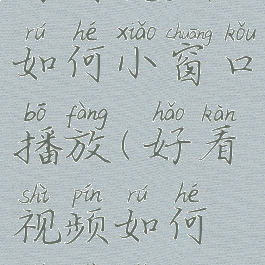 rú hé xiǎo chuāng kǒu
如何小窗口
bō fàng hǎo kàn
播放(好看
shì pín rú hé
视频如何